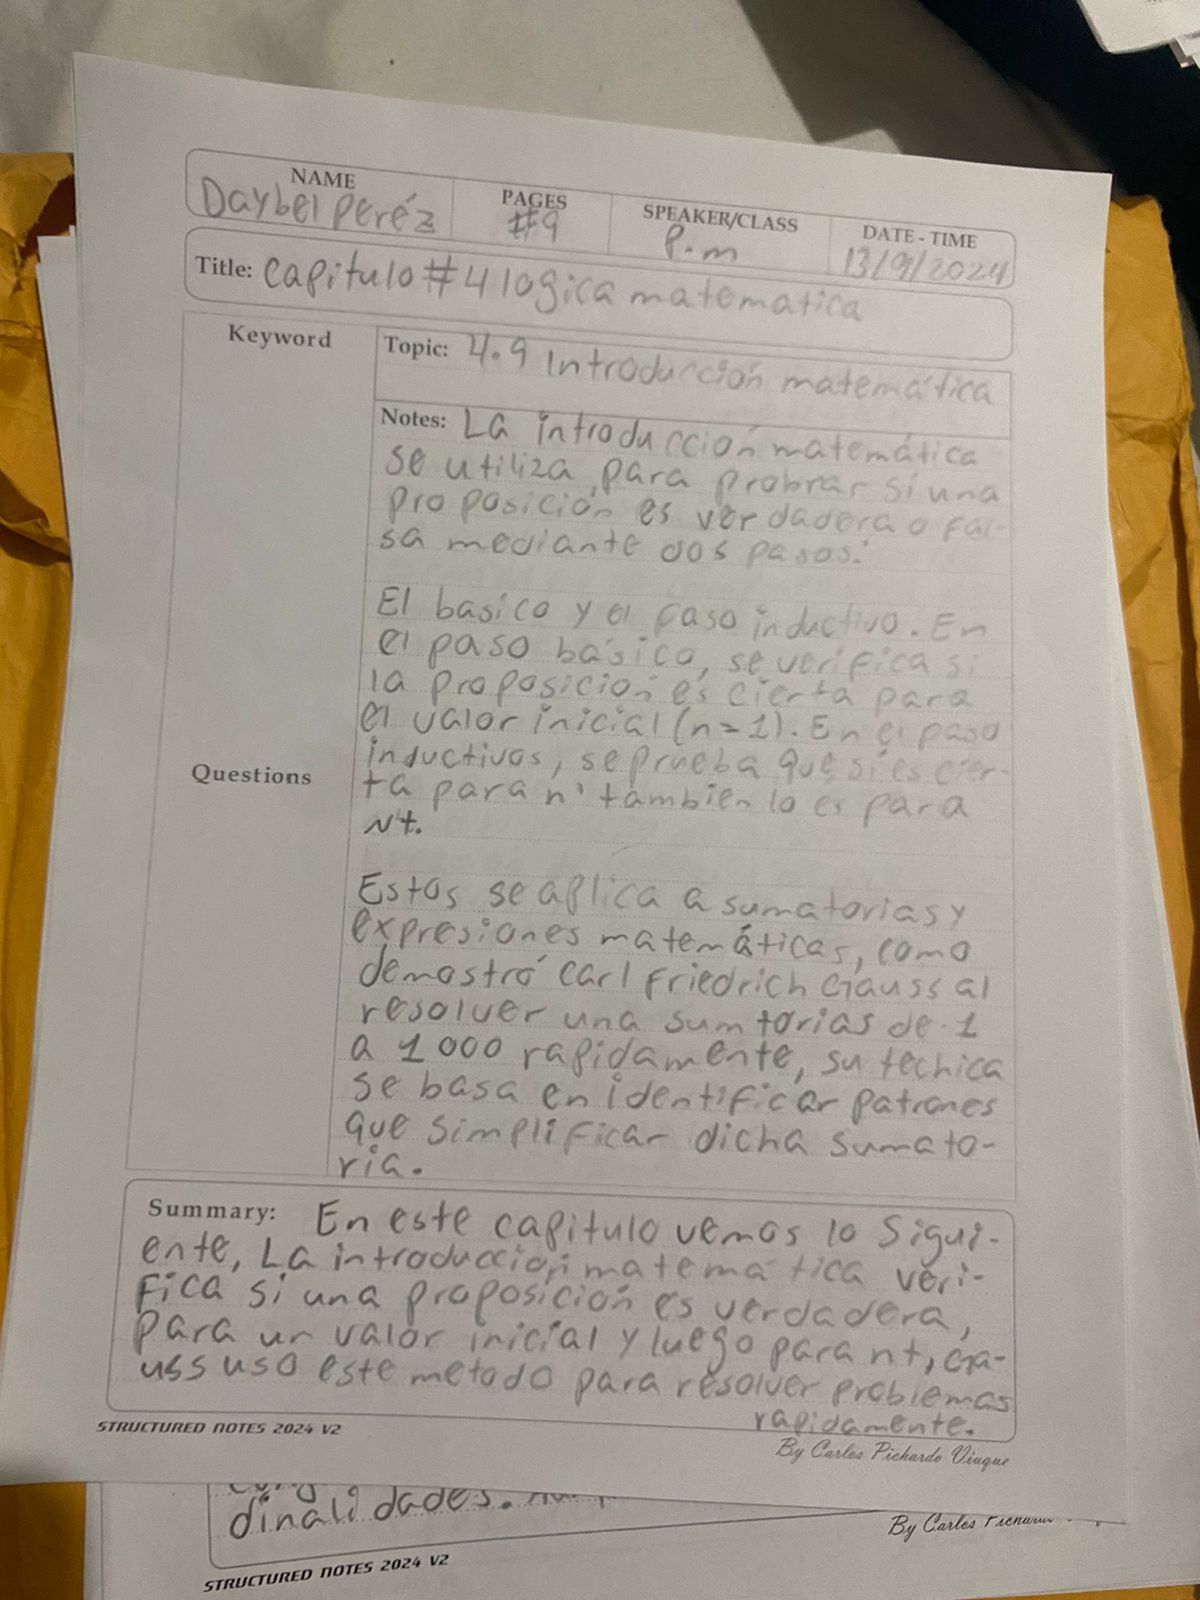 NAME
Daybel Peréz
PAGES
#9
SPEAKER/CLASS
P.m
DATE - TIME
13/9/2024
Title: capitulo #4 logica matematica
Keyword
Topic: 4.9 Introducción matemática
Notes: La introducción matemática
se utiliza, para probrar si una
proposición es verdadera o fal-
sa mediante dos pasos:
El basico y el paso inductivo. En
el paso básico, se verifica si
la proposición es cierta para
el valor inicial (n=1). En el paso
inductivos, se prueba que si es cier-
ta para n' tambien lo es para
Nt.
Questions
Estos se aplica a sumatorias y
expresiones matemáticas, como
demostró Carl Friedrich Gauss al
resolver una sumtorias de 1
a 1000 rapidamente, su techica
se basa en identificar patrones
que simplificar dicha sumato-
ria.
Summary: En este capitulo vemos lo Sigui-
ente, La introduccion matemática veri-
fica si una proposición es verdadera,
para un valor inicial y luego para nt, Ga-
uss uso este metodo para resolver problemas
rapidamente.
STRUCTURED NOTES 2024 V2
By Carlos Pichardo Viuque
dinalidades.
By Carlos
STRUCTURED NOTES 2024 V2